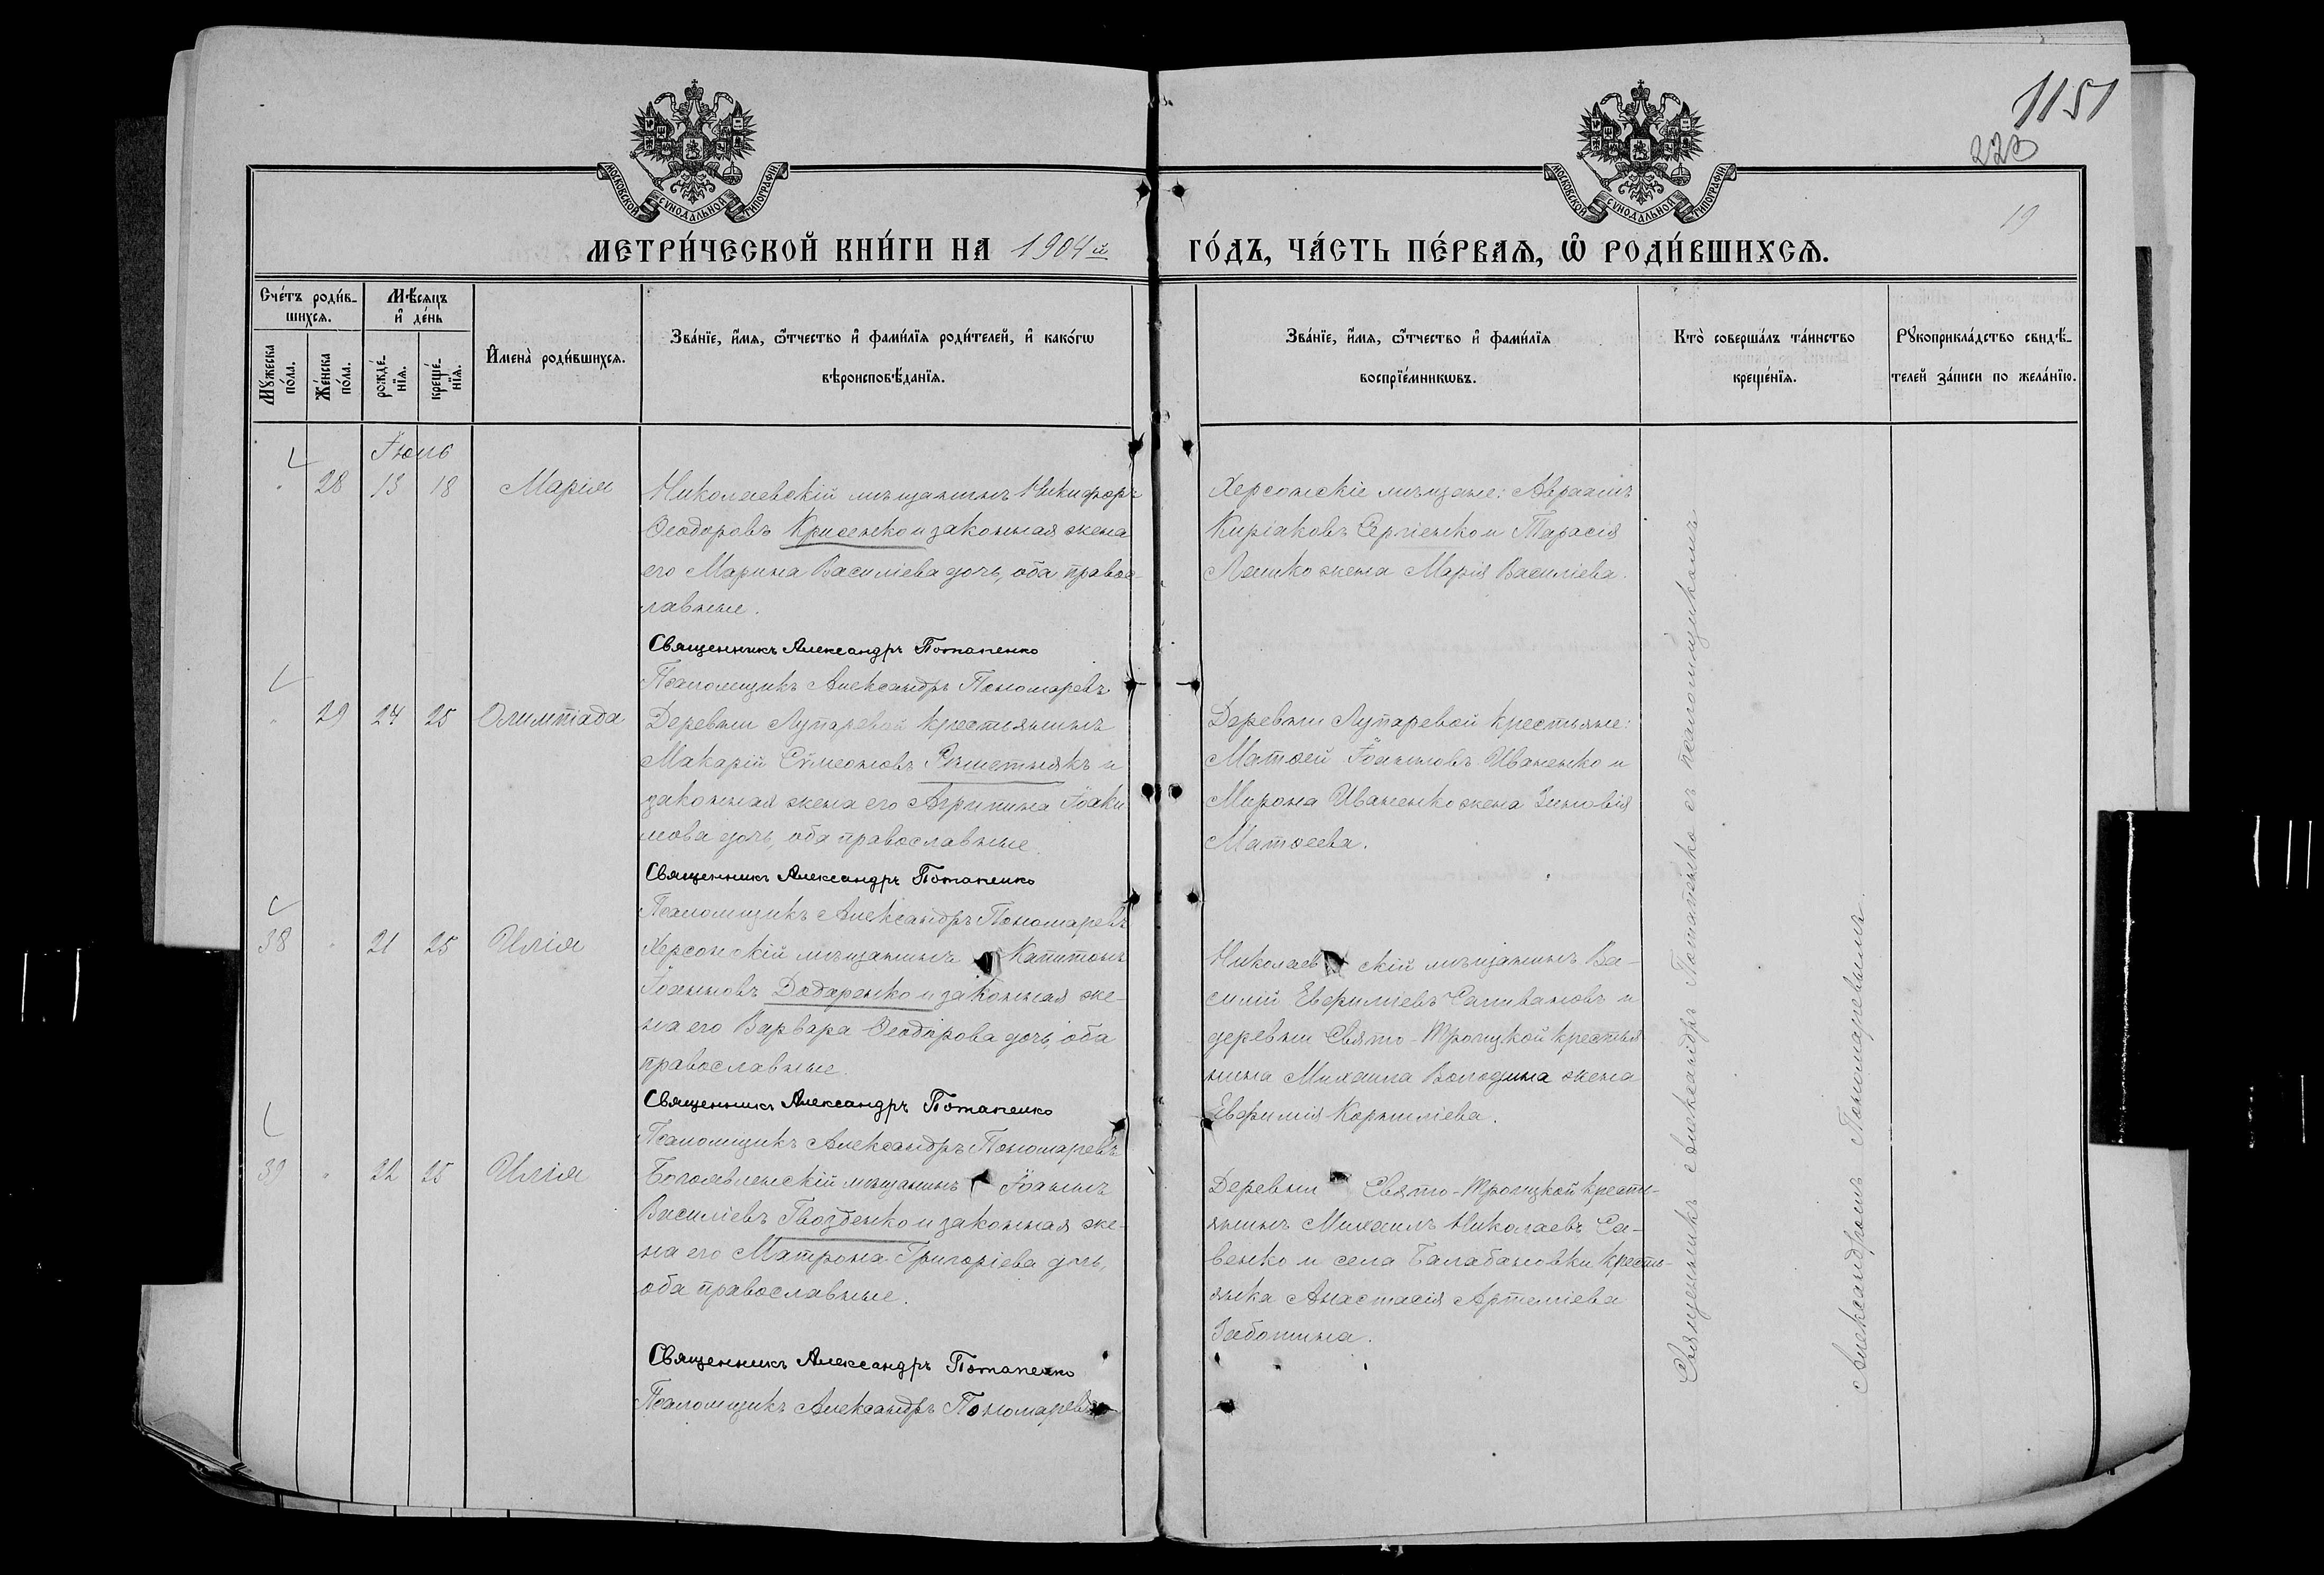 1151
223
19
МОСКОВСКОЙ СѴНОДАЛЬНОЙ ТИПОГРАФІИ.
МОСКОВСКОЙ СѴНОДАЛЬНОЙ ТИПОГРАФІИ.
МЕТРИ́ЧЕСКОЙ КНИ́ГИ НА 1904й ГО́ДЪ, ЧА́СТЬ ПЕ́РВАѦ, Ѿ РОДИ́ВШИХСѦ.
Сче́тъ роди́в-
шихсѧ.
Мꙋ́жеска по́ла.
Же́нска по́ла.
Мѣ́сѧцъ
и҆ де́нь
рожде́-
нїѧ.
креще́-
нїѧ.
И҆мена̀ роди́вшихсѧ.
Зва́нїе, и҆́мѧ, ѻ҆́тчество и҆ фами́лїѧ роди́телей, и҆ како́гѡ
вѣроисповѣ́данїѧ.
Зва́нїе, и҆́мѧ, ѻ҆́тчество и҆ фами́лїѧ
воспрїе́мникѡвъ.
Кто̀ соверша́лъ та́инство
креще́нїѧ.
Рꙋкоприкла́дство свидѣ́-
телей за́писи по жела́нїю.
Іюнь
28 13 18 Марія
Николаевскій мѣщанинъ Никифоръ
Ѳеодоровъ Крисенко и законная жена
его Марина Василіева дочь, оба правос-
лавные.
Священникъ Александръ Потапенко
Псаломщикъ Александръ Пономаревъ
Херсонскіе мѣщане: Авраамъ
Киріаковъ Сергіенко и Тарасія
Ляшко жена Марія Василіева.
29 24 25 Олимпіада
Деревни Лупаревой крестьянинъ
Макарій Сѵмеоновъ Рѣшетнякъ и
законная жена его Агрипина Іоаки
мова дочь, оба православные.
Священникъ Александръ Потапенко
Псаломщикъ Александръ Пономаревъ
Деревни Лупаревой крестьяне:
Матѳей Іоанновъ Иваненко и
Мирона Иваненко жена Зиновія
Матѳеева.
38 21 25 Илія
Херсонскій мѣщанинъ Капитонъ
Іоанновъ Додаренко и законная же-
на его Варвара Ѳеодорова дочь, оба
православные.
Священникъ Александръ Потапенко
Псаломщикъ Александръ Пономаревъ
Николаевскій мѣщанинъ Ва-
силій Евфиміевъ Саливановъ и
деревни Свято-Троицкой крестья
нина Михаила Володина жена
Евфимія Корниліева.
39 22 25 Илія
Богоявленскій мѣщанинъ Іоаннъ
Василіевъ Гвозденко и законная же-
на его Матрона Григоріева дочь,
оба православные.
Священникъ Александръ Потапенко
Псаломщикъ Александръ Пономаревъ
Деревни Свято-Троицкой кресть-
янинъ Михаилъ Николаевъ Са-
венко и села Балабановки кресть-
янка Анастасія Артеміева
Заботина.
Священникъ Александръ Потапенко съ псаломщикомъ
Александромъ Пономаревымъ.